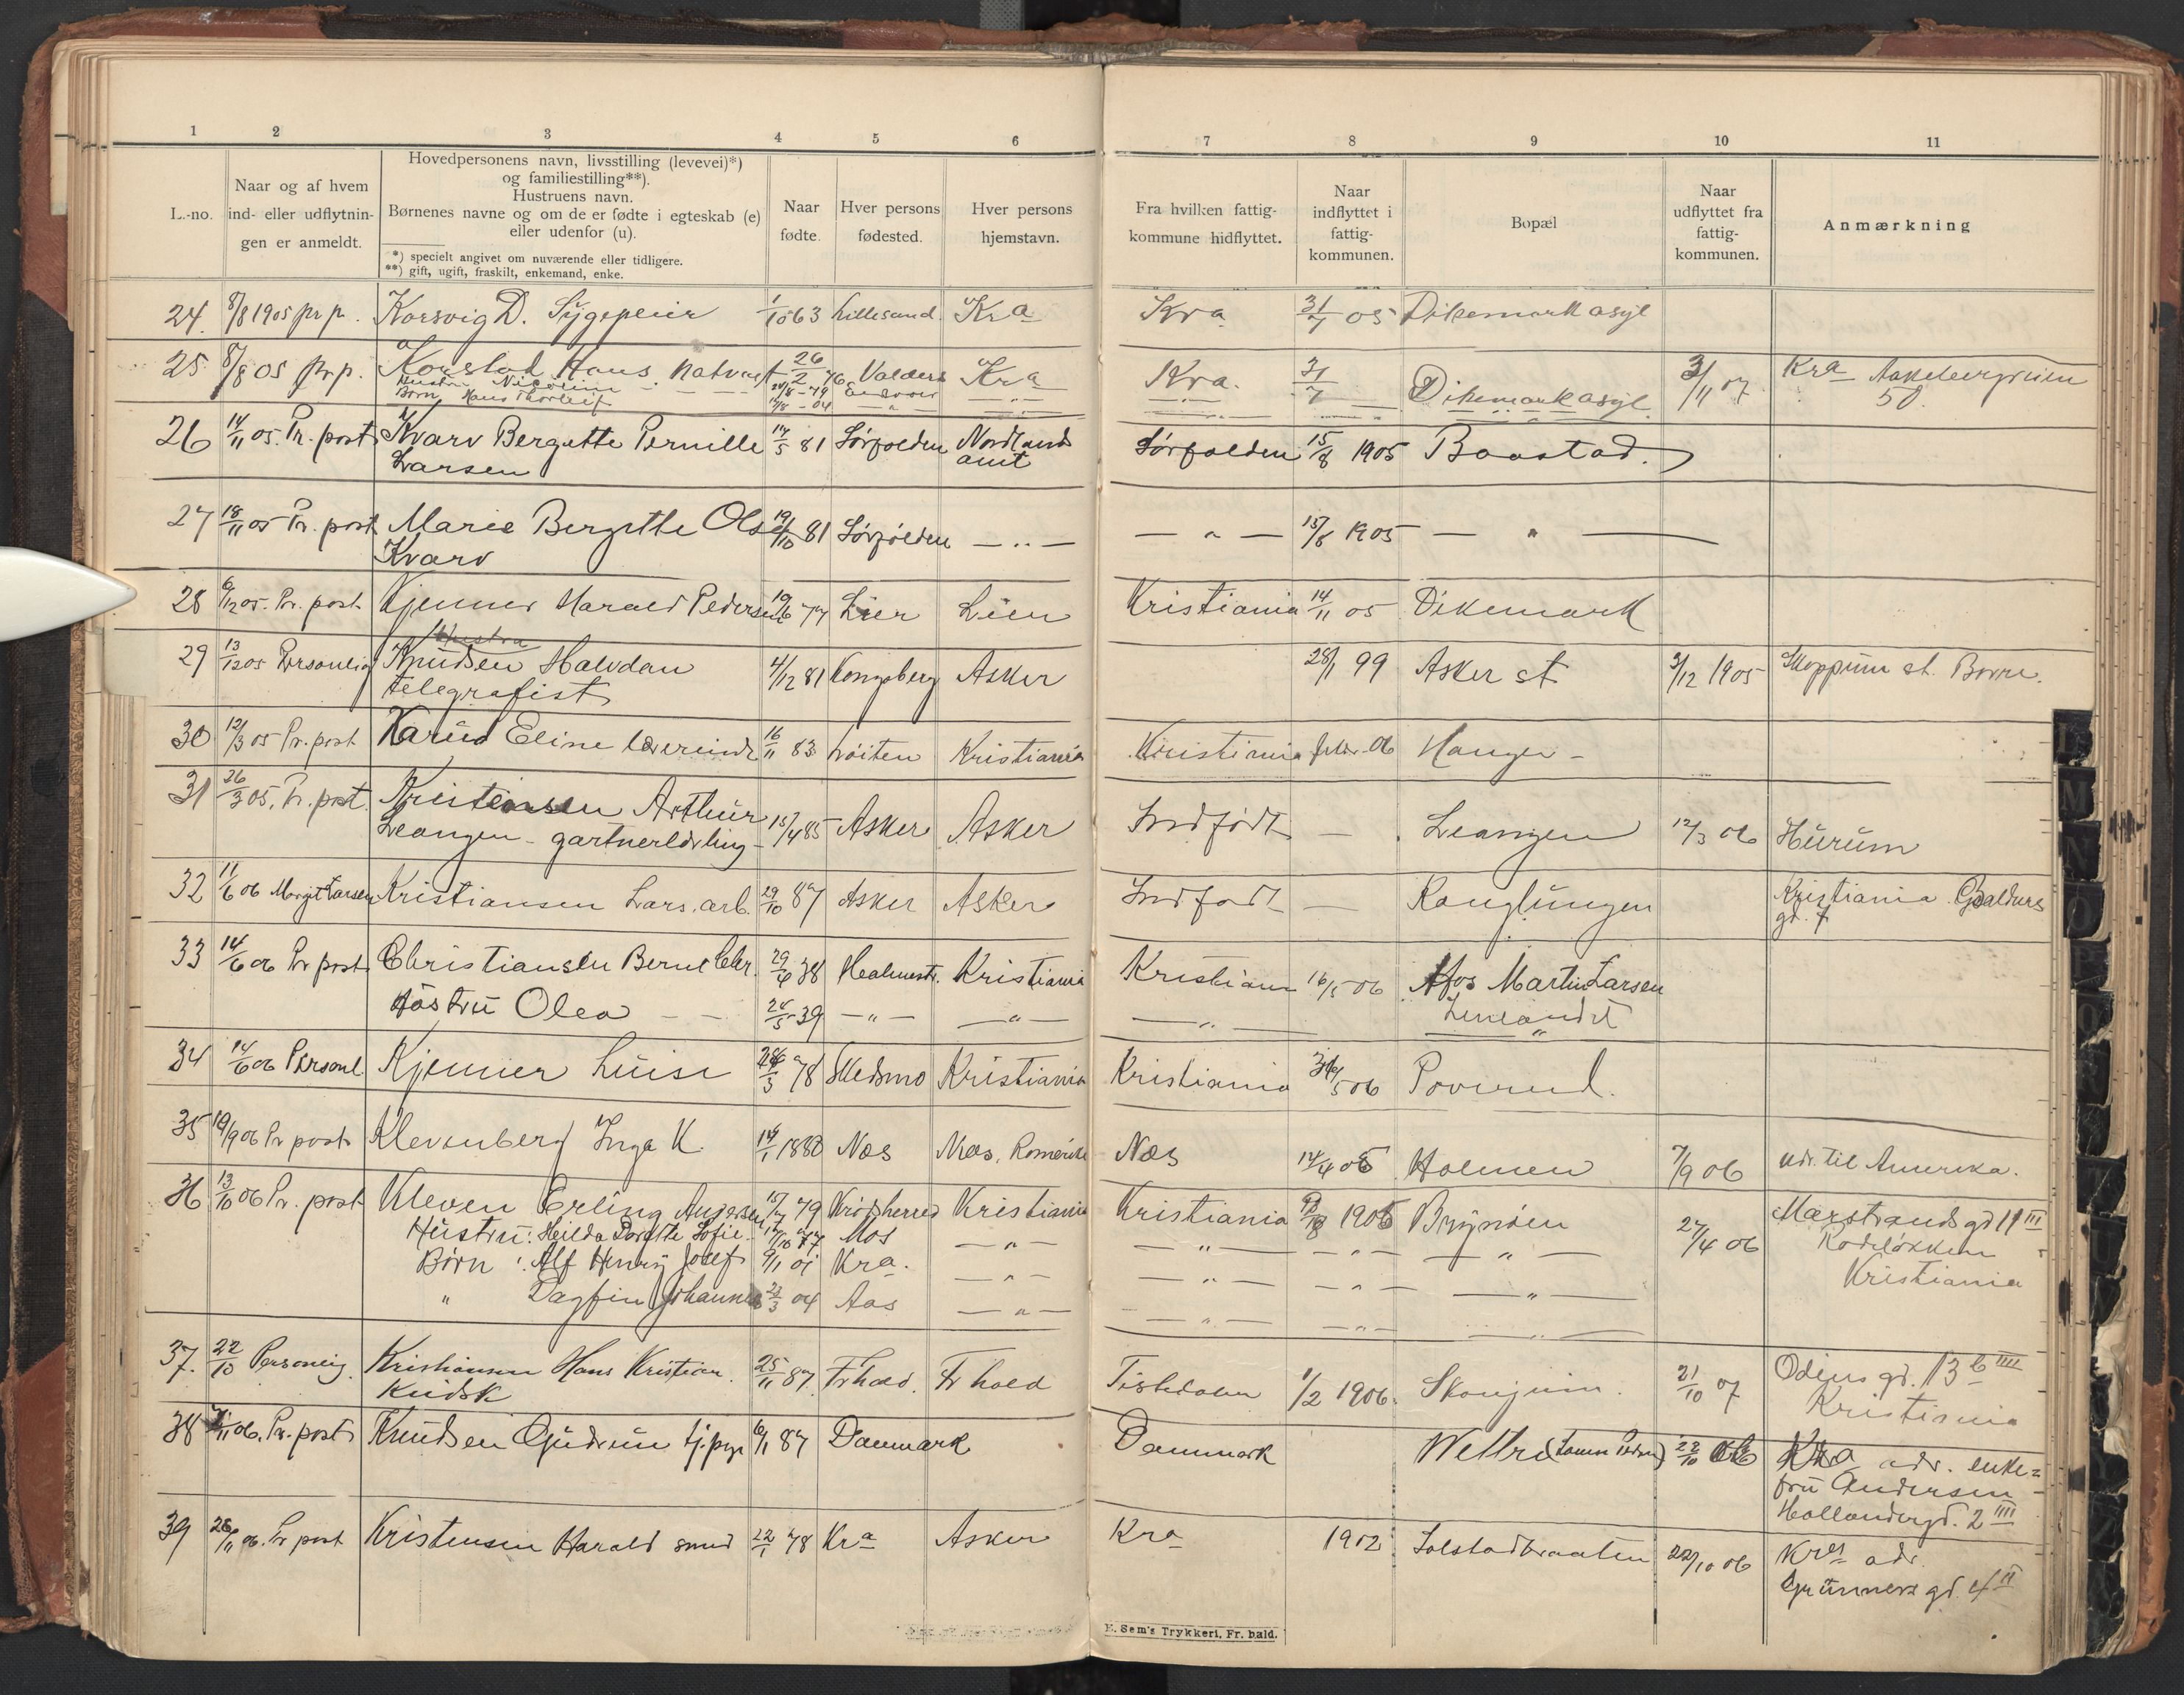 1 2 3 4 5 6 7 8 9 10 11
L.-no.
Naar og af hvem
ind- eller udflytnin-
gen er anmeldt.
Hovedpersonens navn, livsstilling (levevei)*)
og familiestilling**).
Hustruens navn.
Børnenes navne og om de er fødte i egteskab (e)
eller udenfor (u).
*) specielt angivet om nuværende eller tidligere.
**) gift, ugift, fraskilt, enkemand, enke.
Naar
fødte.
Hver persons
fødested.
Hver persons
hjemstavn.
Fra hvilken fattig-
kommune hidflyttet.
Naar
indflyttet i
fattig-
kommunen.
Bopæl
Naar
udflyttet fra
fattig-
kommunen.
Anmærkning
24. 8/8 1905 pr p. Korsvig D. Sygepleier 1/10 63 Lillesand Kra Kra 31/7 05 Dikemark asyl
25 8/8 05 pr p. Hans Natvagt 26/2 76 Valders Kra Kra. 31/7 Dikemark asyl 3/11 07 Kra
Hustru 79
Børn Hans Thorleif 04 50
26 14/11 05. Pr. post Kvarv Bergette Pernille 14/5 81 Sørfolden Nordlands Sørfolden 15/8 1905 Baastad.
Larsen amt
27 18/11 05 Pr. post Marie Bergitte Ols 19/10 81 Sørfolden — „ — — „ — 15/8 1905 — „ —
Kvarv
28 6/12 05. Pr. post Kjenner Harald Pedersen 19/6 77 Lier Lier Kristiania 14/11 05 Dikemark
Hustru
29 13/12 05 Personlig Knudsen Halvdan 4/12 81 Kongsberg Asker 28/1 99 Asker st 3/12 1905 Skoppum st. Borre.
telegrafist
30 12/3 05 Pr. post Karud Eline lærerinde 16/11 83 Løiten Kristiania Kristiania febr. 06 Hanger –
31 26/3 05. Pr. post Kristensen Arthur
Leangen – gartnerlærling – 15/4 85 Asker Asker Indfødt — Leangen 12/3 06 Hurum
32 11/6 06 Margit Larsen Kristiansen Lars. arb. 29/10 87 Asker Asker Indfødt — Konglungen Kristiania Baldurs
gd. 7
33 14/6 06 Pr post Christiansen Bernt Chr. 29/6 38 Holmestr. Kristiania Kristiania 16/5 06 Hos Martin Larsen
Hustru Olea — — 39 — „ — — „ — — „ —
34 14/6 06 Personl Kjenner Luise 78 Skedsmo Kristiania Kristiania 06 Poverud.
35 19/9 06 Pr post Klevenberg Inga K. 14/1 1880 Nes Nes, Romerike Nes 14/4 06 Holmen 7/9 06 udr. til Amerika.
36 13/10 06 Pr. post Kleven Erling Andersen 15/7 79 Krødsherred Kristiania Kristiania 1906 Brynøen 27/4 06 Marstrands gd 11 III
Hustru: Hilda Dorthe Sofie 17/10 77 Mos — „ — — „ — — „ — — „ — Rodeløkken
Børn : Alf Henry Josef 9/1 01 Kra. — „ — — „ — — „ — — „ — Kristiania
„ Dagfin Johannes 04 Aas — „ — — „ — — „ — — „ —
37. 22/10 Personlig. Kristiansen Hans Kristian. 25/11 87. Frhald. Fr hald Tistedalen 1/2 1906. Skaugum. 21/10 07 Odins gd. 13 b IIII
Kudsk Kristiania
38 06. Pr. post Knudsen Gudrun tj.pge 6/1 87 Danmark Danmark Wettre 22/10 06 Kra adr. enke-
fru Andersen
Hollendergd. 2 IIII
39 26/11 06. Pr post Kristensen Harald smed 22/1 78 Kra Asker Kra 1902 Solstadbraaten 22/10 06 Kra adr.
Grünners gd. 4 II
E. Sem's Trykkeri, Fr. hald.